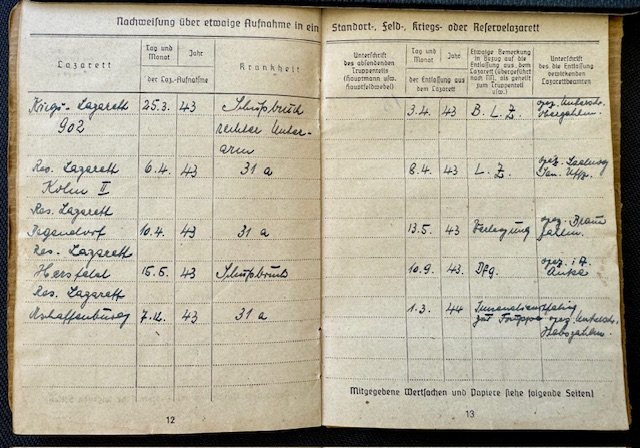 Nachweisung über etwaige Aufnahme in ein
Lazarett
Tag und Monat
Jahr
der Laz.-Aufnahme
Krankheit
Kriegs-Lazarett 25.3. 43 Schußbruch
902 rechter Unter-
arm
Res. Lazarett 6.4. 43 31 a
Res. Lazarett
10.4. 43 31 a
Res. Lazarett
Hersfeld 15.5. 43 Schußbruch
Res. Lazarett
Aschaffenburg 7.12. 43 31 a
12
Standort-, Feld-, Kriegs- oder Reservelazarett
Unterschrift
des absendenden
Truppenteils
(Hauptmann usw.
Hauptfeldwebel)
Tag und Monat
Jahr
der Entlassung aus
dem Lazarett
Etwaige Bemerkung
in Bezug auf die
Entlassung aus dem
Lazarett (übergeführt
nach N., als geheilt
zum Truppenteil
usw.)
Unterschrift
des die Entlassung
bewirkenden
Lazarettbeamten
3.4. 43 B. L. Z. gez. Unterschr.
8.4. 43 L. Z. gez.
Uffz.
13.5. 43 Verlegung gez.
10.9. 43. gez. i.A.
1.3. 44
zur Truppe gez. Unterschr.
Mitgegebene Wertsachen und Papiere siehe folgende Seiten!
13